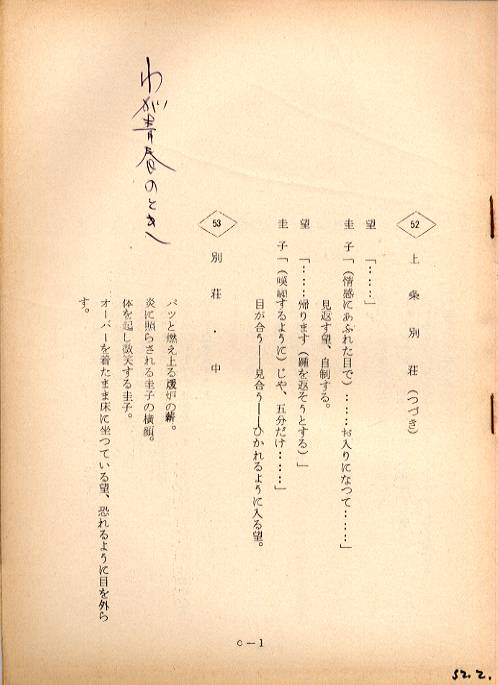 52 上条別荘（つづき）
望「……」
圭子「（情感にあふれた目で）……お入りになつて……」
見返す望、自制する。
望「……帰ります（踵を返そうとする）」
圭子「（嘆願するように）じや、五分だけ……」
目が合う──見合う──ひかれるように入る望。
53 別荘・中
パツと燃え上る煖炉の薪。
炎に照らされる圭子の横顔。
体を起し微笑する圭子。
オーバーを着たまま床に坐つている望、恐れるように目を外ら
す。
わが青春のとき
c－1
52.2.